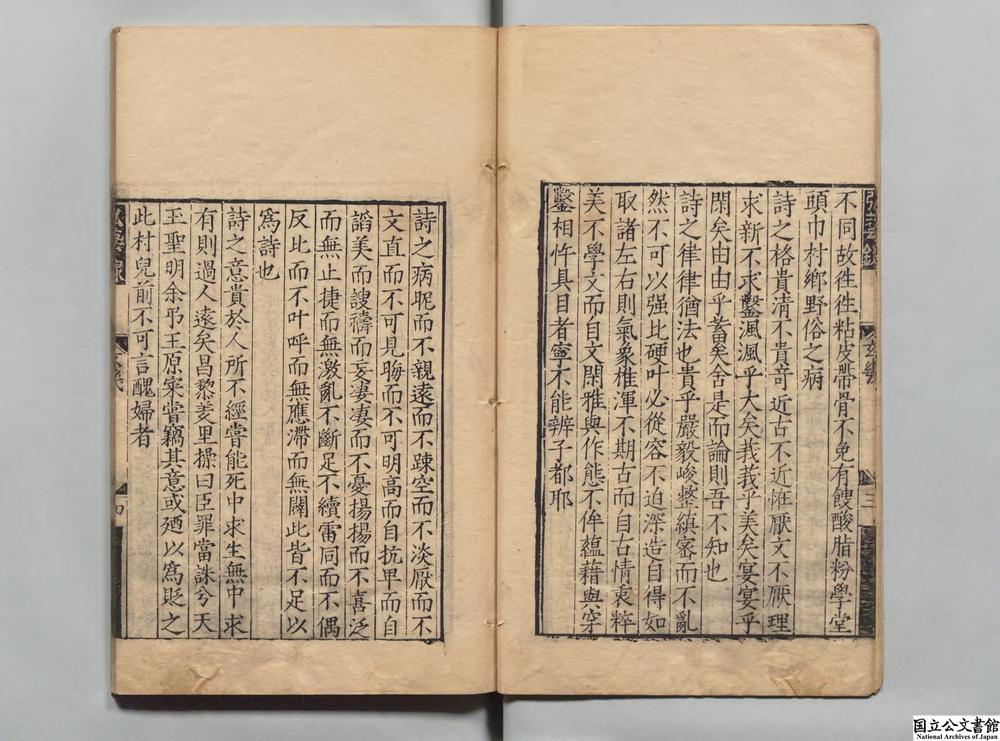 不同故徃徃粘皮帶骨不免有餿酸脂粉學堂
頭巾村鄉野俗之病
詩之格貴清不貴奇近古不近恠厭文不厭理
求新不求鑿渢渢乎大矣莪莪乎美矣宴宴乎
閑矣由由乎蓄矣舍是而論則吾不知也
詩之律律猶法也貴乎嚴毅峻整縝宻而不亂
然不可以强比硬叶必從容不迫深造自得如
取諸左右則氣象椎渾不期古而自古情衷粹
美不學文而自文閑雅與作態不侔蘊藉與穿
鑿相忤具目者寧不能辨子都耶
三
詩之病昵而不親遠而不踈空而不淡厭而不
文直而不可見晦而不可明高而自抗卑而自
謟美而諛禱而妄淒淒而不憂揚揚而不喜泛
而無止捷而無激亂不斷足不續雷同而不偶
反比而不叶呼而無應滯而無闢此皆不足以
爲詩也
詩之意貴於人所不經嘗能死中求生無中求
有則過人遠矣昌黎羑里操曰臣罪當誅兮天
王聖明余弔王原寀嘗竊其意或廼以爲貶之
此村兒前不可言醜婦者
四
国立公文書館
National Archives of Japan